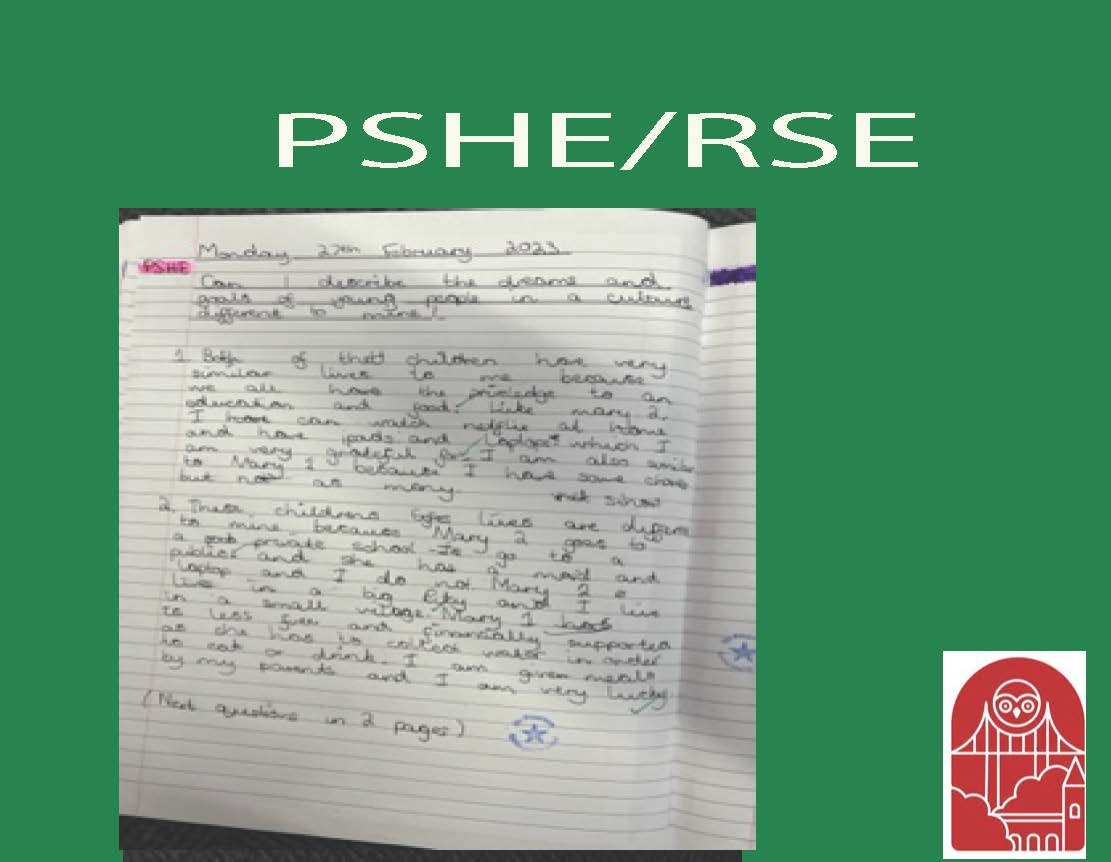 PSHE/RSE
Monday 27th February 2023
PSHE
Can I describe the dreams and
goals of young people in a culture
different to mine?
1. Both of that children have very
similar lives to me because
we all have the to an
education and good. Like mary 2.
I can watch netflix at home
and have ipads and Laptops which I
am very grateful for. I am also similar
to Mary 1 because I have some chores
but not as many.
2. These childrens lives are
to mine because Mary 2 goes to
a private school I go to a
public and she has a maid and
laptop and I do not. Mary 2
live in a big City and I live
in a small village. Mary 1
to less free and financially supported
as she has to collect water in order
to eat or drink. I am given meals
by my parents and I am very lucky
(Next questions in 2 pages)